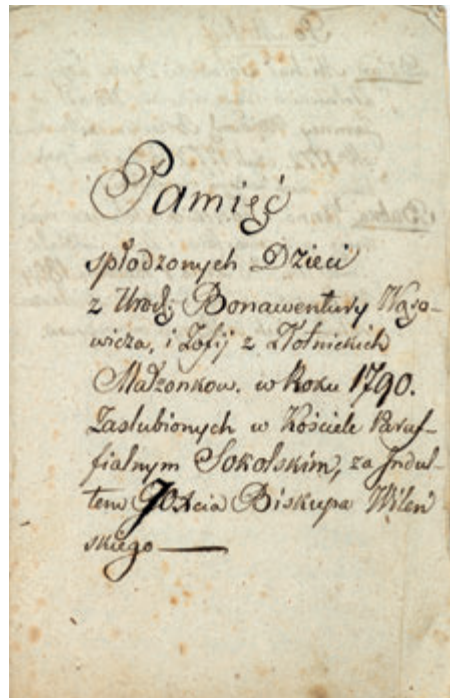 Pamięć
spłodzonych Dzieci
z Urodz: Bonawentury Wąso-
wicza, i Zofij z Złotnickich
Małżonkow. w Roku 1790.
Zaslubionych w Kościele Paraf-
fialnym Sokolskim, za Indul-
tem JO Xcia Biskupa Wileń
skiego —